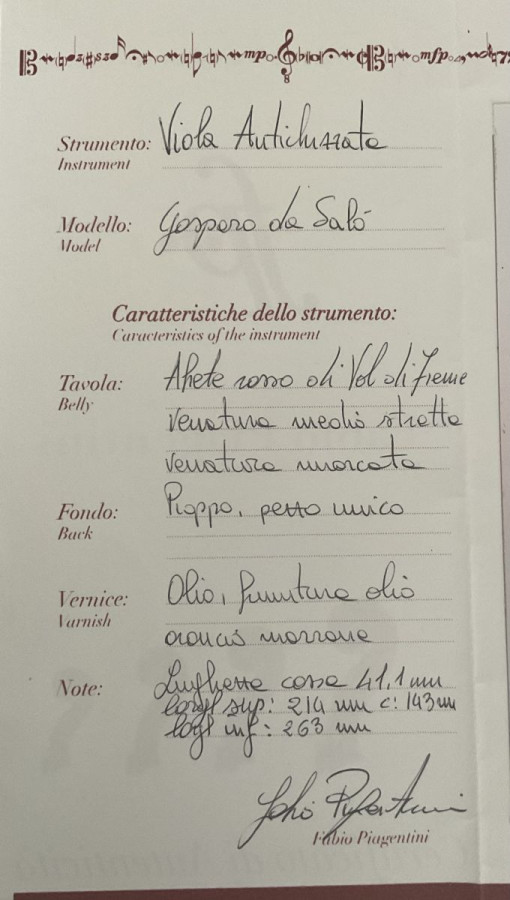 Strumento: Viola Antichizzata
Instrument
Modello: Gasparo da Salò
Model
Caratteristiche dello strumento:
Caracteristics of the instrument
Tavola: Abete rosso di Val di Fiemme
Belly
venatura medio stretta
venatura marcata
Fondo: Pioppo, pezzo unico
Back
Vernice: Olio,
Varnish
arancio marrone
Note: cassa 41,1 mm
sup: 214 mm c: 143 mm
inf: 263 mm
Fabio Piagentini
Fabio Piagentini